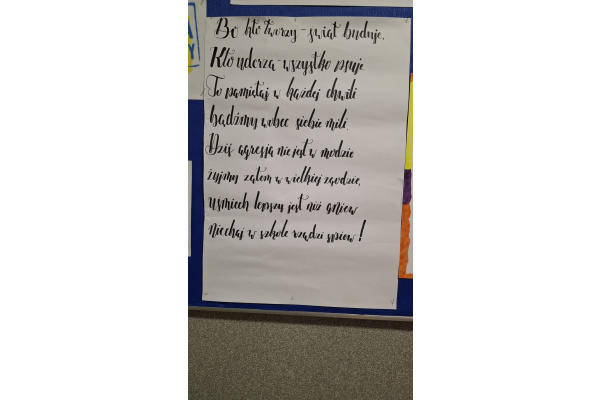 Bo kto tworzy - świat buduje.
Kto uderza - wszystko psuje
To pamiętaj w każdej chwili
bądźmy wobec siebie mili.
Dziś agresja nie jest w modzie
żyjmy zatem w wielkiej zgodzie,
uśmiech lepszy jest niż gniew
niechaj w szkole rządzi śpiew!